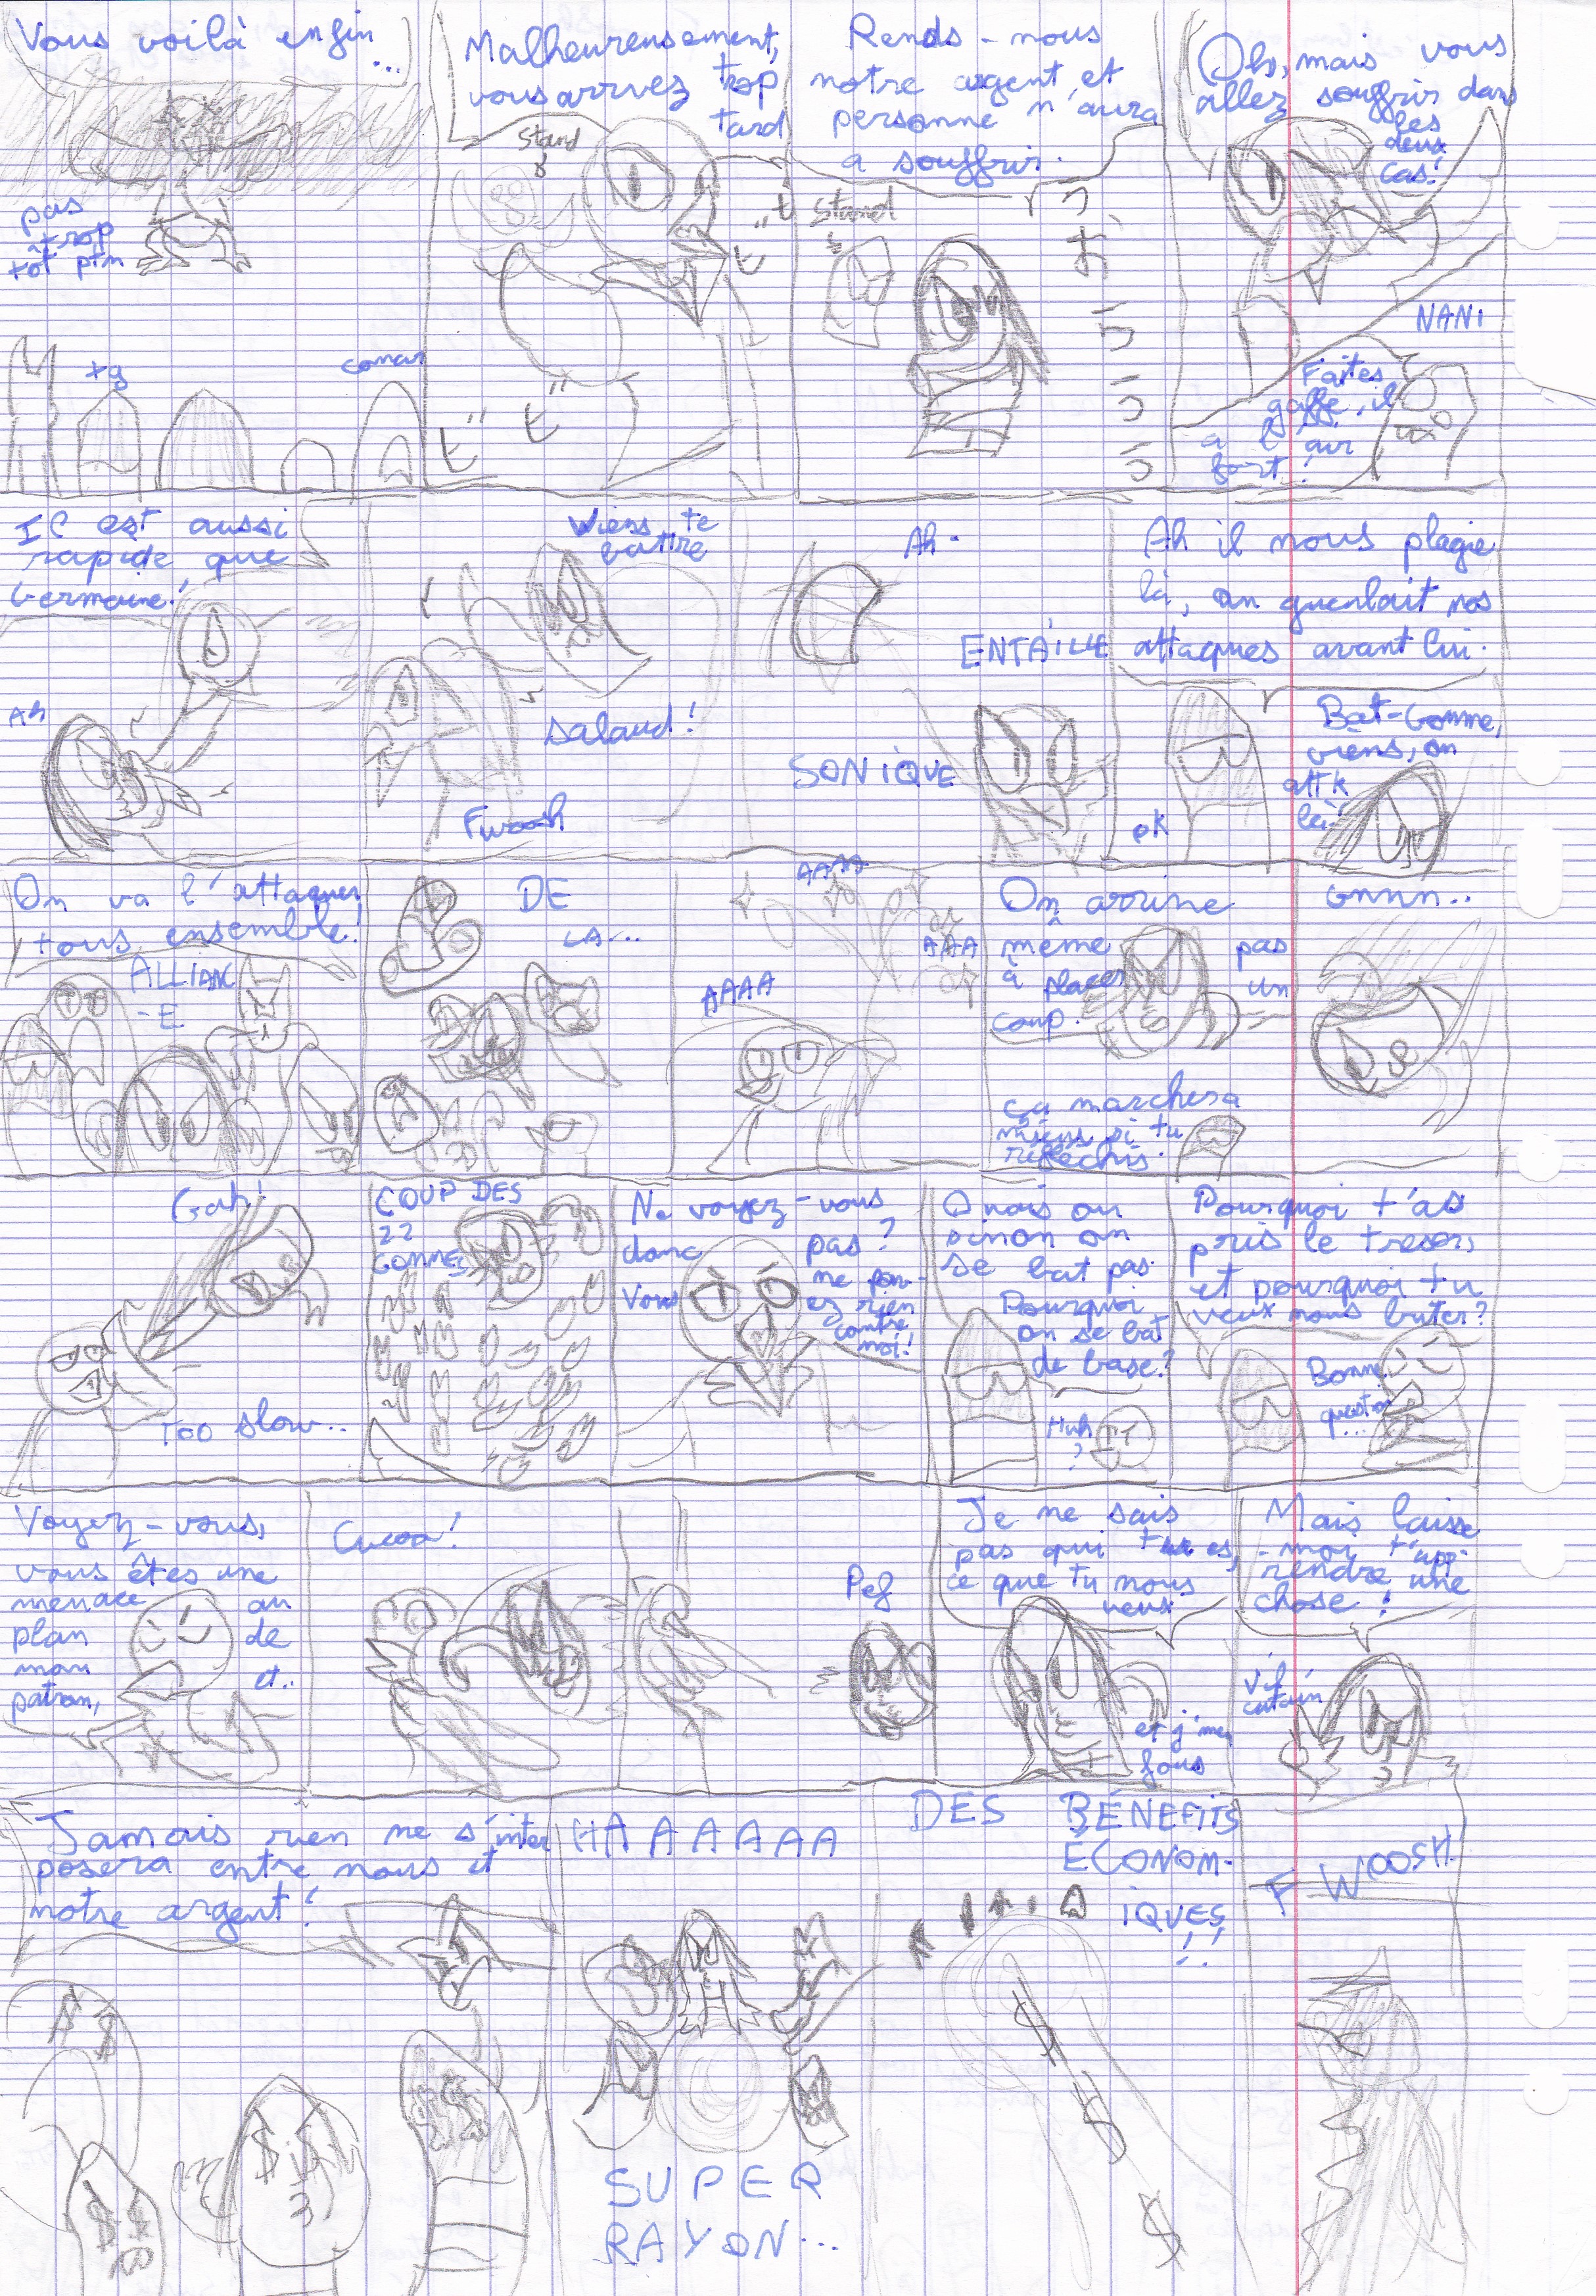 Vous voilà enfin
...
pas
trop
tôt ptn
tg
conar
Malheureusement,
vous arrivez trop
tard
Stand
Rends-nous
notre argent, et
personne n'aura
a souffrir.
Stand
Oh, mais vous
allez souffrir dans
les
deux
cas!
NANI
Faites
gaffe, il
a l'air
fort!
IL est aussi
rapide que
Germaine!
Ah
Viens te
battre
Salaud!
Fwoosh
Ah.
ENTAILLE
SONIQUE
Ah il nous plagie
là, on gueulait nos
attaques avant lui.
Bat-Gomme,
viens, on
attk
là!
ok
On va l'attaquer
tous ensemble!
ALLIANC
-E
DE
LA...
AAAA
AAAA
AAA
On arrive
même
pas
à placer
un
coup.
ça marchera
mieux si tu
réfléchis.
Gnnn..
Gah!
Too slow..
COUP DES
22
GOMMES
Ne voyez-vous
donc pas?
Vous ne pouv-
ez rien
contre
moi!
Ouais ou
sinon on
se bat pas.
Pourquoi
on se bat
de base?
Huh
?
Pourquoi t'as
pris le trésor,
et pourquoi tu
veux nous buter?
Bonne
question
...
Voyez-vous,
vous êtes une
menace au
plan de
mon
patron, et..
Cucoo!
Pef
Je ne sais
pas qui tu es,
ce que tu nous
veux
et j'm'en
fous
Mais laisse
-moi t'app-
rendre une
chose!
Jamais rien ne s'inter
posera entre nous et
notre argent!
HAAAAAA
SUPER
RAYON...
DES BÉNEFITS
ÉCONOM-
IQUES
!!!
FWOOSH